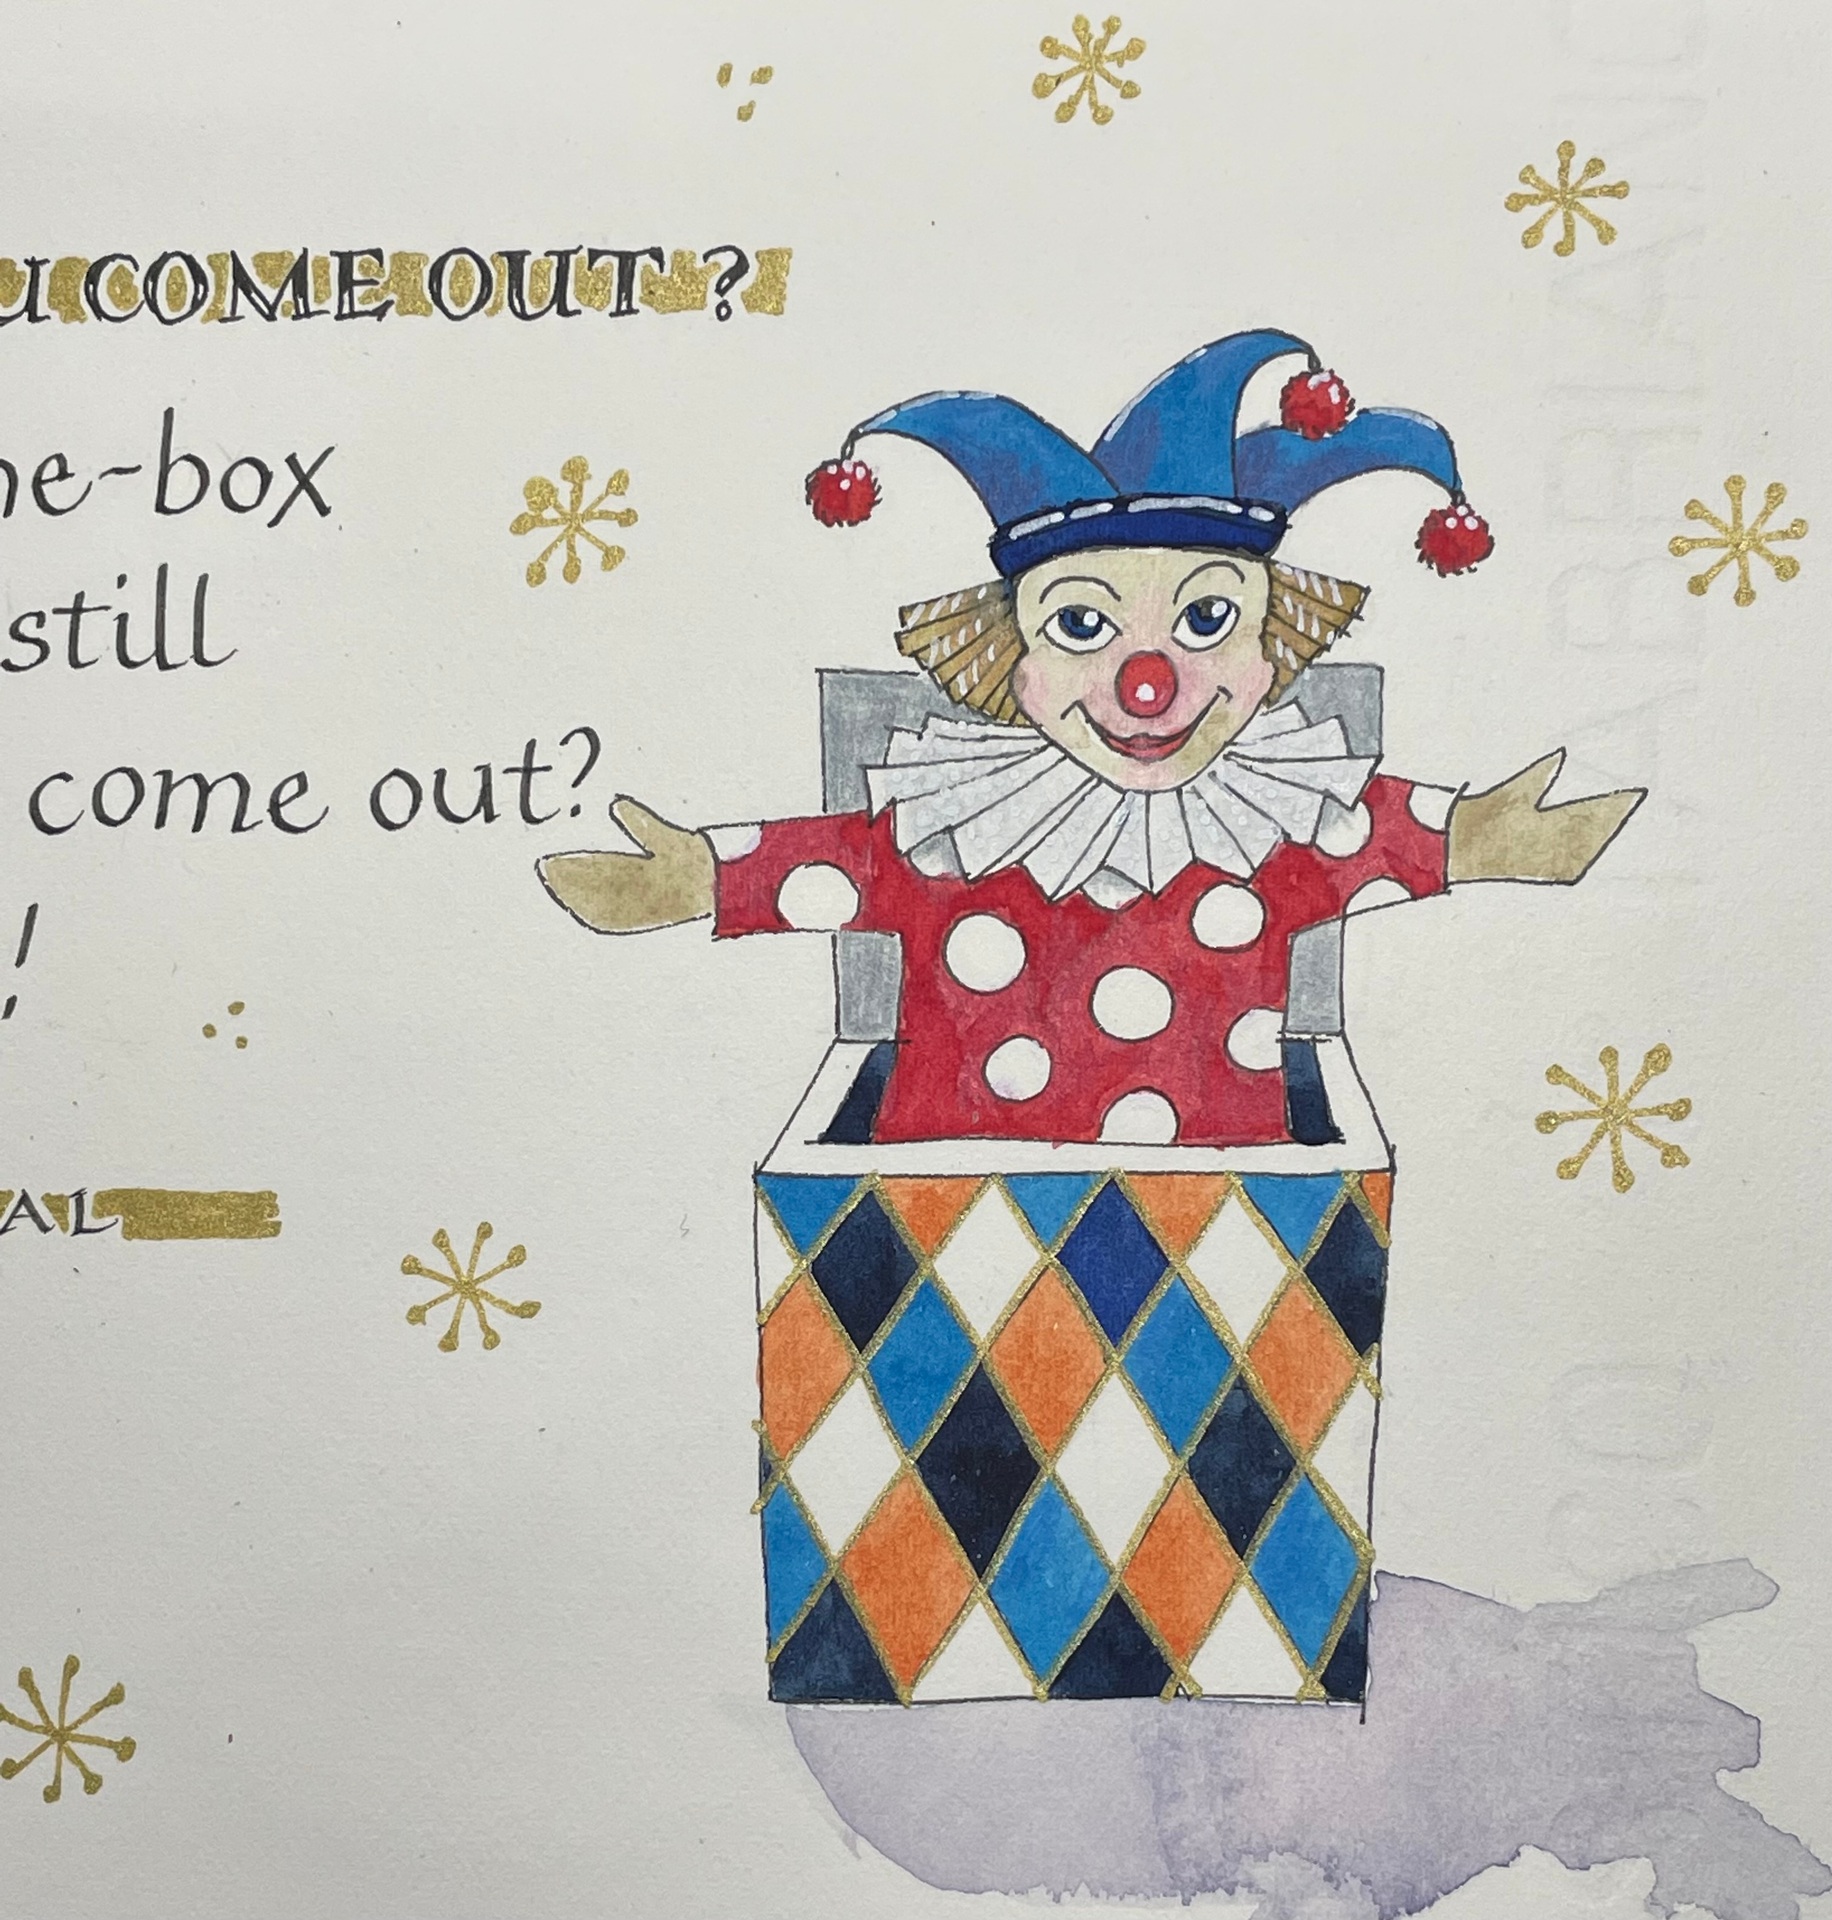 U COME OUT ?
he-box
still
come out?
!
AL